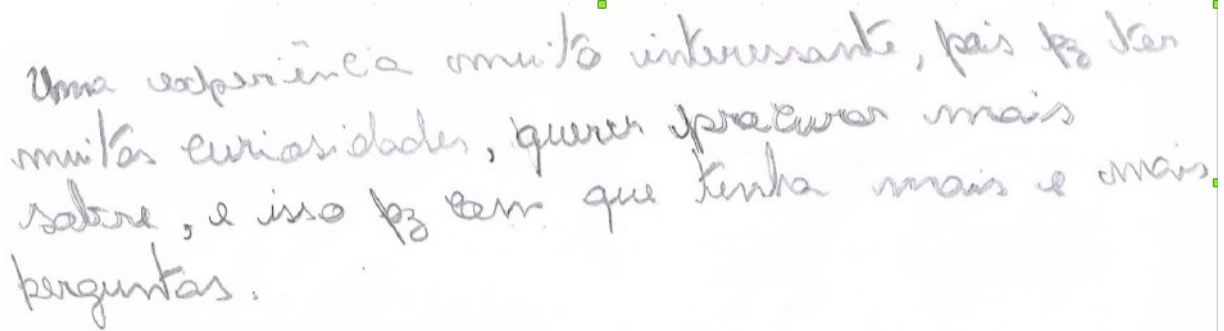 Uma experiência muito interessante, pois fz ter
muitas curiosidades, querer procurar mais
sobre, e isso fz com que tenha mais e mais
perguntas.